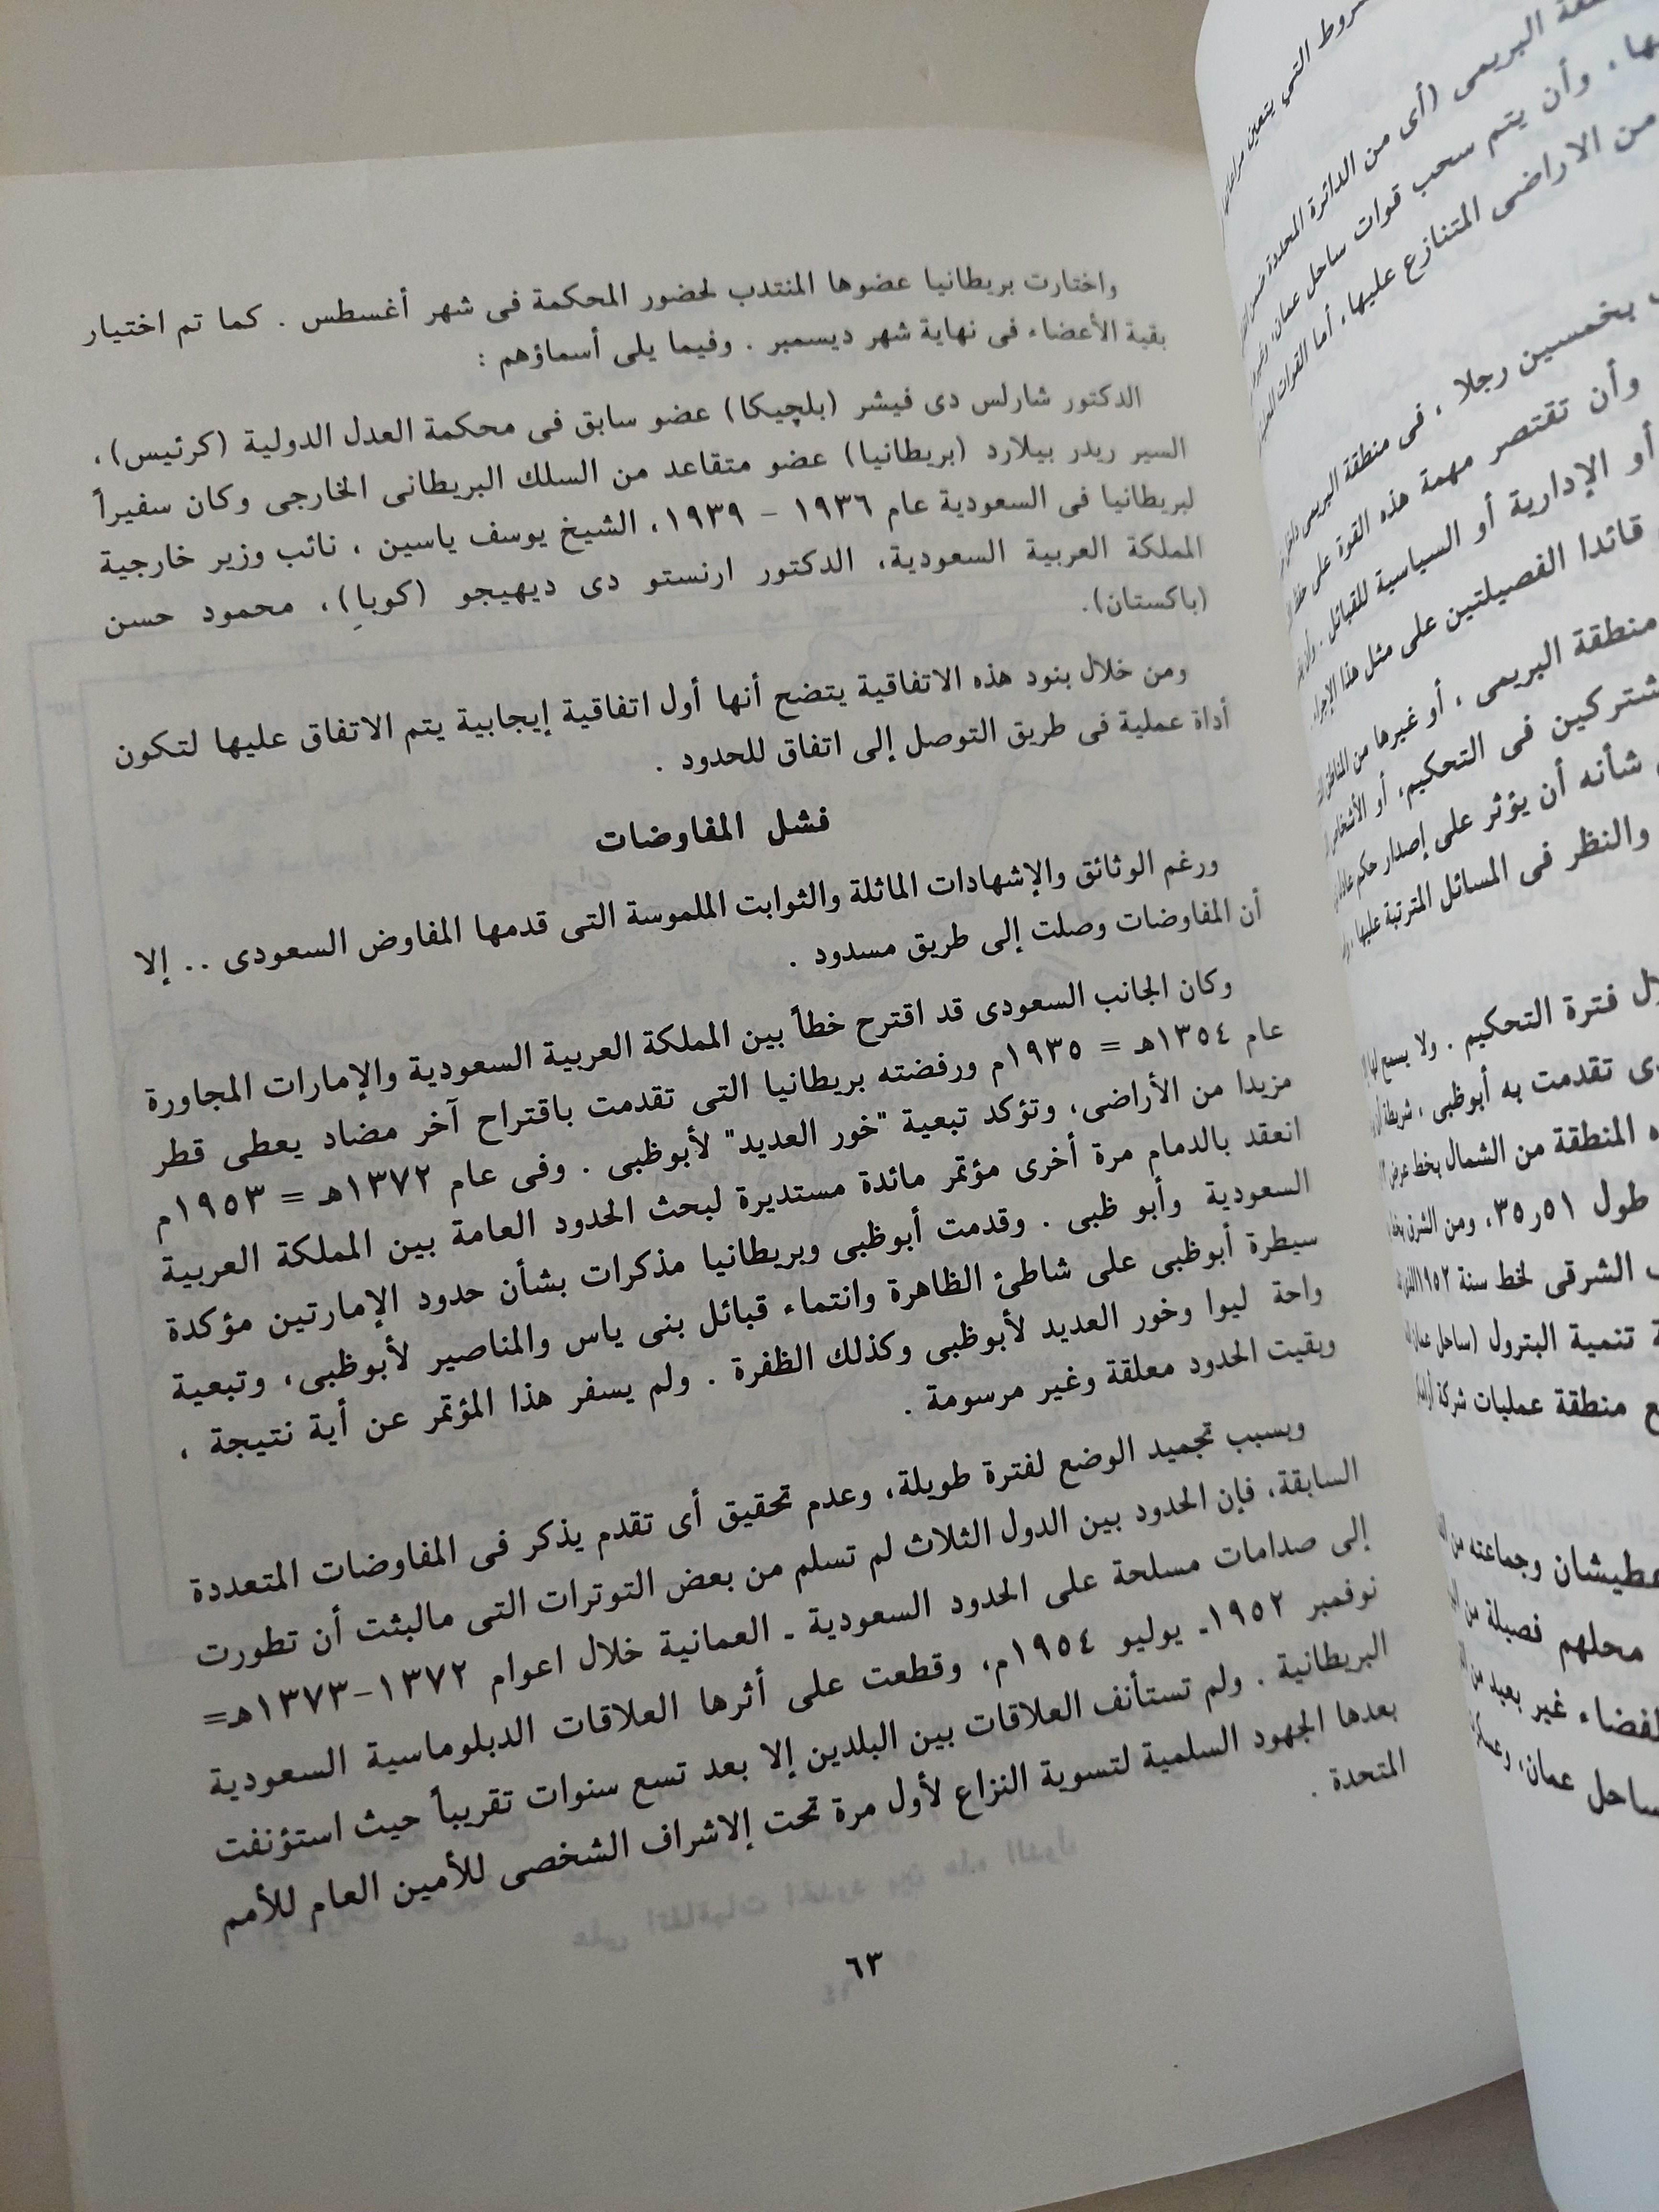 واختارت بريطانيا عضوها المنتدب لحضور المحكمة فى شهر أغسطس . كما تم اختيار
بقية الأعضاء فى نهاية شهر ديسمبر . وفيما يلى أسماؤهم :
الدكتور شارلس دى فيشر (بلچيكا) عضو سابق فى محكمة العدل الدولية (كرئيس)،
السير ريدر بيلارد (بريطانيا) عضو متقاعد من السلك البريطانى الخارجى وكان سفيراً
لبريطانيا فى السعودية عام ١٩٣٦ - ١٩٣٩، الشيخ يوسف ياسين ، نائب وزير خارجية
المملكة العربية السعودية، الدكتور ارنستو دى ديهيجو (كوبا)، محمود حسن
(باكستان).
ومن خلال بنود هذه الاتفاقية يتضح أنها أول اتفاقية إيجابية يتم الاتفاق عليها لتكون
أداة عملية فى طريق التوصل إلى اتفاق للحدود .
فشل المفاوضات
ورغم الوثائق والإشهادات الماثلة والثوابت الملموسة التى قدمها المفاوض السعودى .. إلا
أن المفاوضات وصلت إلى طريق مسدود .
وكان الجانب السعودى قد اقترح خطاً بين المملكة العربية السعودية والإمارات المجاورة
عام ١٣٥٤هـ = ١٩٣٥م ورفضته بريطانيا التى تقدمت باقتراح آخر مضاد يعطى قطر
مزيدا من الأراضى، وتؤكد تبعية "خور العديد" لأبوظبى . وفى عام ١٣٧٢هـ = ١٩٥٣م
انعقد بالدمام مرة أخرى مؤتمر مائدة مستديرة لبحث الحدود العامة بين المملكة العربية
السعودية وأبو ظبى . وقدمت أبوظبى وبريطانيا مذكرات بشأن حدود الإمارتين مؤكدة
سيطرة أبوظبى على شاطئ الظاهرة وانتماء قبائل بنى ياس والمناصير لأبوظبى، وتبعية
واحة ليوا وخور العديد لأبوظبى وكذلك الظفرة . ولم يسفر هذا المؤتمر عن أية نتيجة ،
وبقيت الحدود معلقة وغير مرسومة .
وبسبب تجميد الوضع لفترة طويلة، وعدم تحقيق أى تقدم يذكر فى المفاوضات المتعددة
السابقة، فإن الحدود بين الدول الثلاث لم تسلم من بعض التوترات التى مالبثت أن تطورت
إلى صدامات مسلحة على الحدود السعودية ـ العمانية خلال اعوام ١٣٧٢-١٣٧٣هـ=
نوفمبر ١٩٥٢ـ يوليو ١٩٥٤م، وقطعت على أثرها العلاقات الدبلوماسية السعودية
البريطانية . ولم تستأنف العلاقات بين البلدين إلا بعد تسع سنوات تقريباً حيث استؤنفت
بعدها الجهود السلمية لتسوية النزاع لأول مرة تحت إلاشراف الشخصى للأمين العام للأمم
المتحدة .
٦٣
التي يتعين
البريمى (أى من الدائرة المحددة
وأن يتم سحب قوات ساحل عمان،
من الاراضى المتنازع عليها، أما القوات
بخمسين رجلا ، فى منطقة البريمى
وأن تقتصر مهمة هذه القوة على
أو الإدارية أو السياسية للقبائل .
قائدا الفصيلتين على مثل هذا
منطقة البريمى ، أو غيرها من
فى التحكيم، أو
شأنه أن يؤثر على إصدار حكم
والنظر فى المسائل المترتبة عليها
فترة التحكيم . ولا يسمح
تقدمت به أبوظبى ،
المنطقة من الشمال بخط عرض
طول ٥١ر٣٥، ومن الشرق
الشرقى لخط سنة ١٩٥٢
تنمية البترول (ساحل
منطقة عمليات شركة
وجماعته من
محلهم فصيلة من
غير بعيد من
عمان،